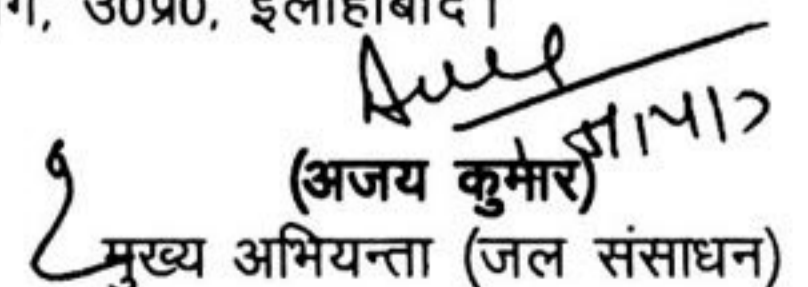 उ0प्र0, इलाहाबाद।
(अजय कुमार)
मुख्य अभियन्ता (जल संसाधन)